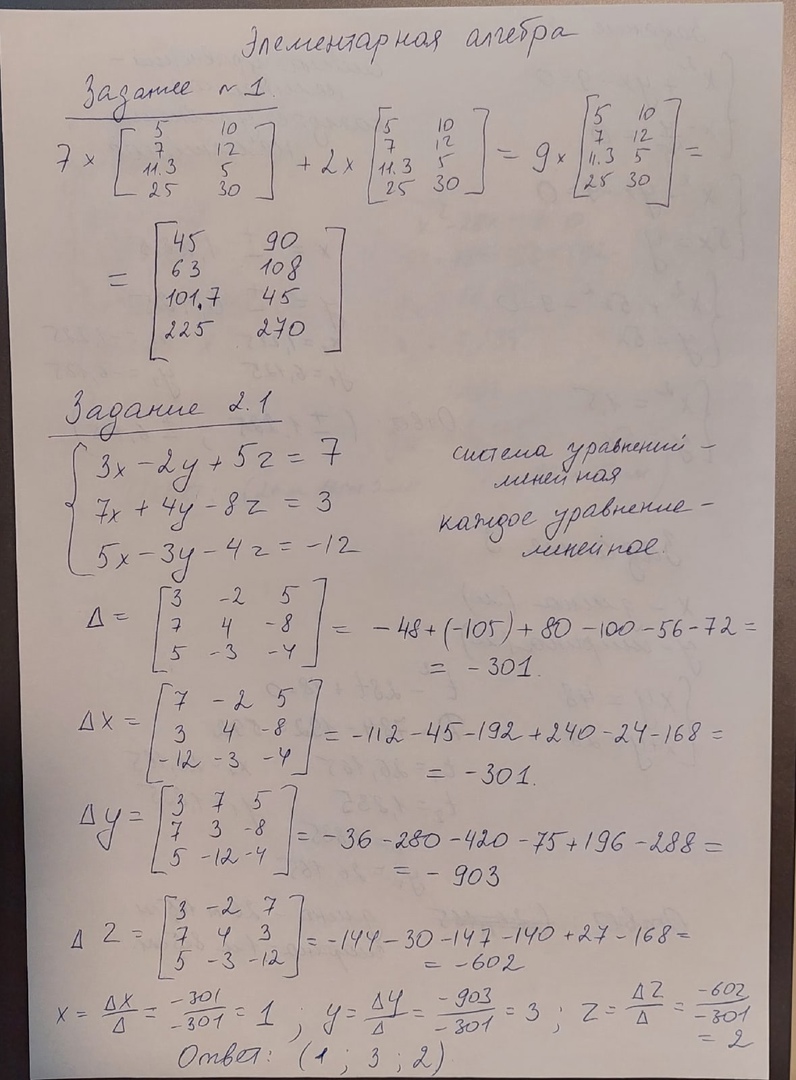 Элементарная алгебра
Задание №1.
7 × [5 10; 7 12; 11.3 5; 25 30] + 2 × [5 10; 7 12; 11.3 5; 25 30] = 9 × [5 10; 7 12; 11.3 5; 25 30] =
= [45 90; 63 108; 101.7 45; 225 270]
Задание 2.1
{ 3x - 2y + 5z = 7
7x + 4y - 8z = 3
5x - 3y - 4z = -12
система уравнений -
линейная
каждое уравнение -
линейное.
Δ = [3 -2 5; 7 4 -8; 5 -3 -4] = -48 + (-105) + 80 - 100 - 56 - 72 =
= -301.
Δx = [7 -2 5; 3 4 -8; -12 -3 -4] = -112 - 45 - 192 + 240 - 24 - 168 =
= -301.
Δy = [3 7 5; 7 3 -8; 5 -12 -4] = -36 - 280 - 420 - 75 + 196 - 288 =
= - 903
Δ z = [3 -2 7; 7 4 3; 5 -3 -12] = -144 - 30 - 147 - 140 + 27 - 168 =
= -602
x = Δx/Δ = -301/-301 = 1 ; y = Δy/Δ = -903/-301 = 3 ; z = Δz/Δ = -602/-301
= 2
Ответ: (1 ; 3 ; 2)